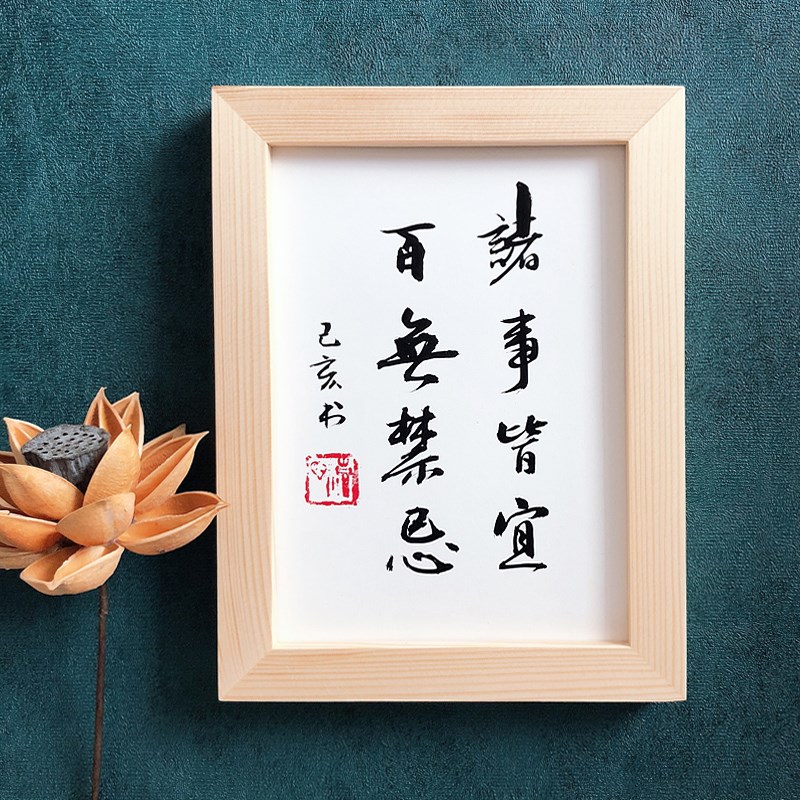 諸事皆宜
百無禁忌
己亥书